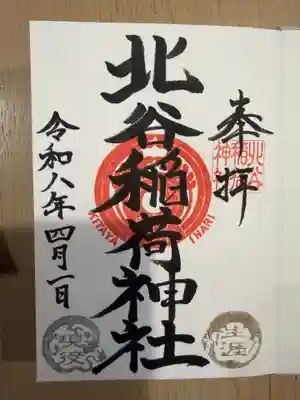 奉拝
北谷稲荷神社
令和八年四月一日
北谷稲荷神社
KITAYA INARI